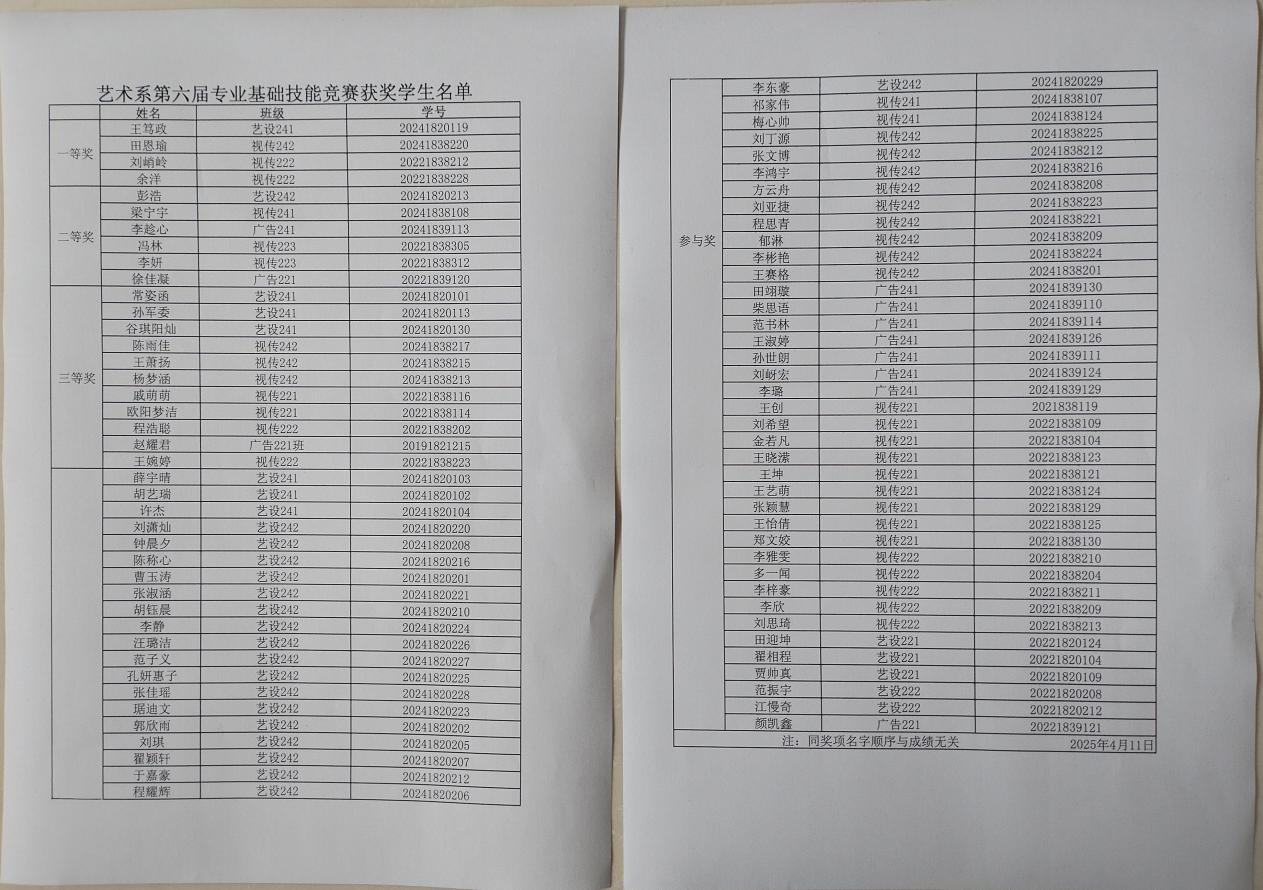 艺术系第六届专业基础技能竞赛获奖学生名单
姓名 班级 学号
王笃政 艺设241 20241820119
田恩瑜 视传242 20241838220
一等奖
刘峭岭 视传222 20221838212
余洋 视传222 20221838228
彭浩 艺设242 20241820213
梁宁宇 视传241 20241838108
李趁心 广告241 20241839113
二等奖
冯林 视传223 20221838305
李妍 视传223 20221838312
徐佳凝 广告221 20221839120
常姿函 艺设241 20241820101
孙军委 艺设241 20241820113
谷琪阳灿 艺设241 20241820130
陈雨佳 视传242 20241838217
王萧扬 视传242 20241838215
三等奖 杨梦涵 视传242 20241838213
戚萌萌 视传221 20221838116
欧阳梦洁 视传221 20221838114
程浩聪 视传222 20221838202
赵耀君 广告221班 20191821215
王婉婷 视传222 20221838223
薛宇晴 艺设241 20241820103
胡艺瑞 艺设241 20241820102
许杰 艺设241 20241820104
刘潇灿 艺设242 20241820220
钟晨夕 艺设242 20241820208
陈称心 艺设242 20241820216
曹玉涛 艺设242 20241820201
张淑涵 艺设242 20241820221
胡钰晨 艺设242 20241820210
李静 艺设242 20241820224
汪璐洁 艺设242 20241820226
范子义 艺设242 20241820227
孔妍惠子 艺设242 20241820225
张佳瑶 艺设242 20241820228
琚迪文 艺设242 20241820223
郭欣雨 艺设242 20241820202
刘琪 艺设242 20241820205
翟颖轩 艺设242 20241820207
于嘉豪 艺设242 20241820212
程耀辉 艺设242 20241820206
李东豪 艺设242 20241820229
祁家伟 视传241 20241838107
梅心帅 视传241 20241838124
刘丁源 视传242 20241838225
张文博 视传242 20241838212
李鸿宇 视传242 20241838216
方云舟 视传242 20241838208
刘亚捷 视传242 20241838223
程思青 视传242 20241838221
参与奖 郁淋 视传242 20241838209
李彬艳 视传242 20241838224
王赛格 视传242 20241838201
田翊璇 广告241 20241839130
柴思语 广告241 20241839110
范书林 广告241 20241839114
王淑婷 广告241 20241839126
孙世朗 广告241 20241839111
刘岈宏 广告241 20241839124
李璐 广告241 20241839129
王创 视传221 2021838119
刘希望 视传221 20221838109
金若凡 视传221 20221838104
王晓潆 视传221 20221838123
王坤 视传221 20221838121
王艺萌 视传221 20221838124
张颖慧 视传221 20221838129
王怡倩 视传221 20221838125
郑文姣 视传221 20221838130
李雅雯 视传222 20221838210
多一闻 视传222 20221838204
李梓豪 视传222 20221838211
李欣 视传222 20221838209
刘思琦 视传222 20221838213
田迎坤 艺设221 20221820124
翟相程 艺设221 20221820104
贾帅真 艺设221 20221820109
范振宇 艺设222 20221820208
江慢奇 艺设222 20221820212
颜凯鑫 广告221 20221839121
注：同奖项名字顺序与成绩无关 2025年4月11日